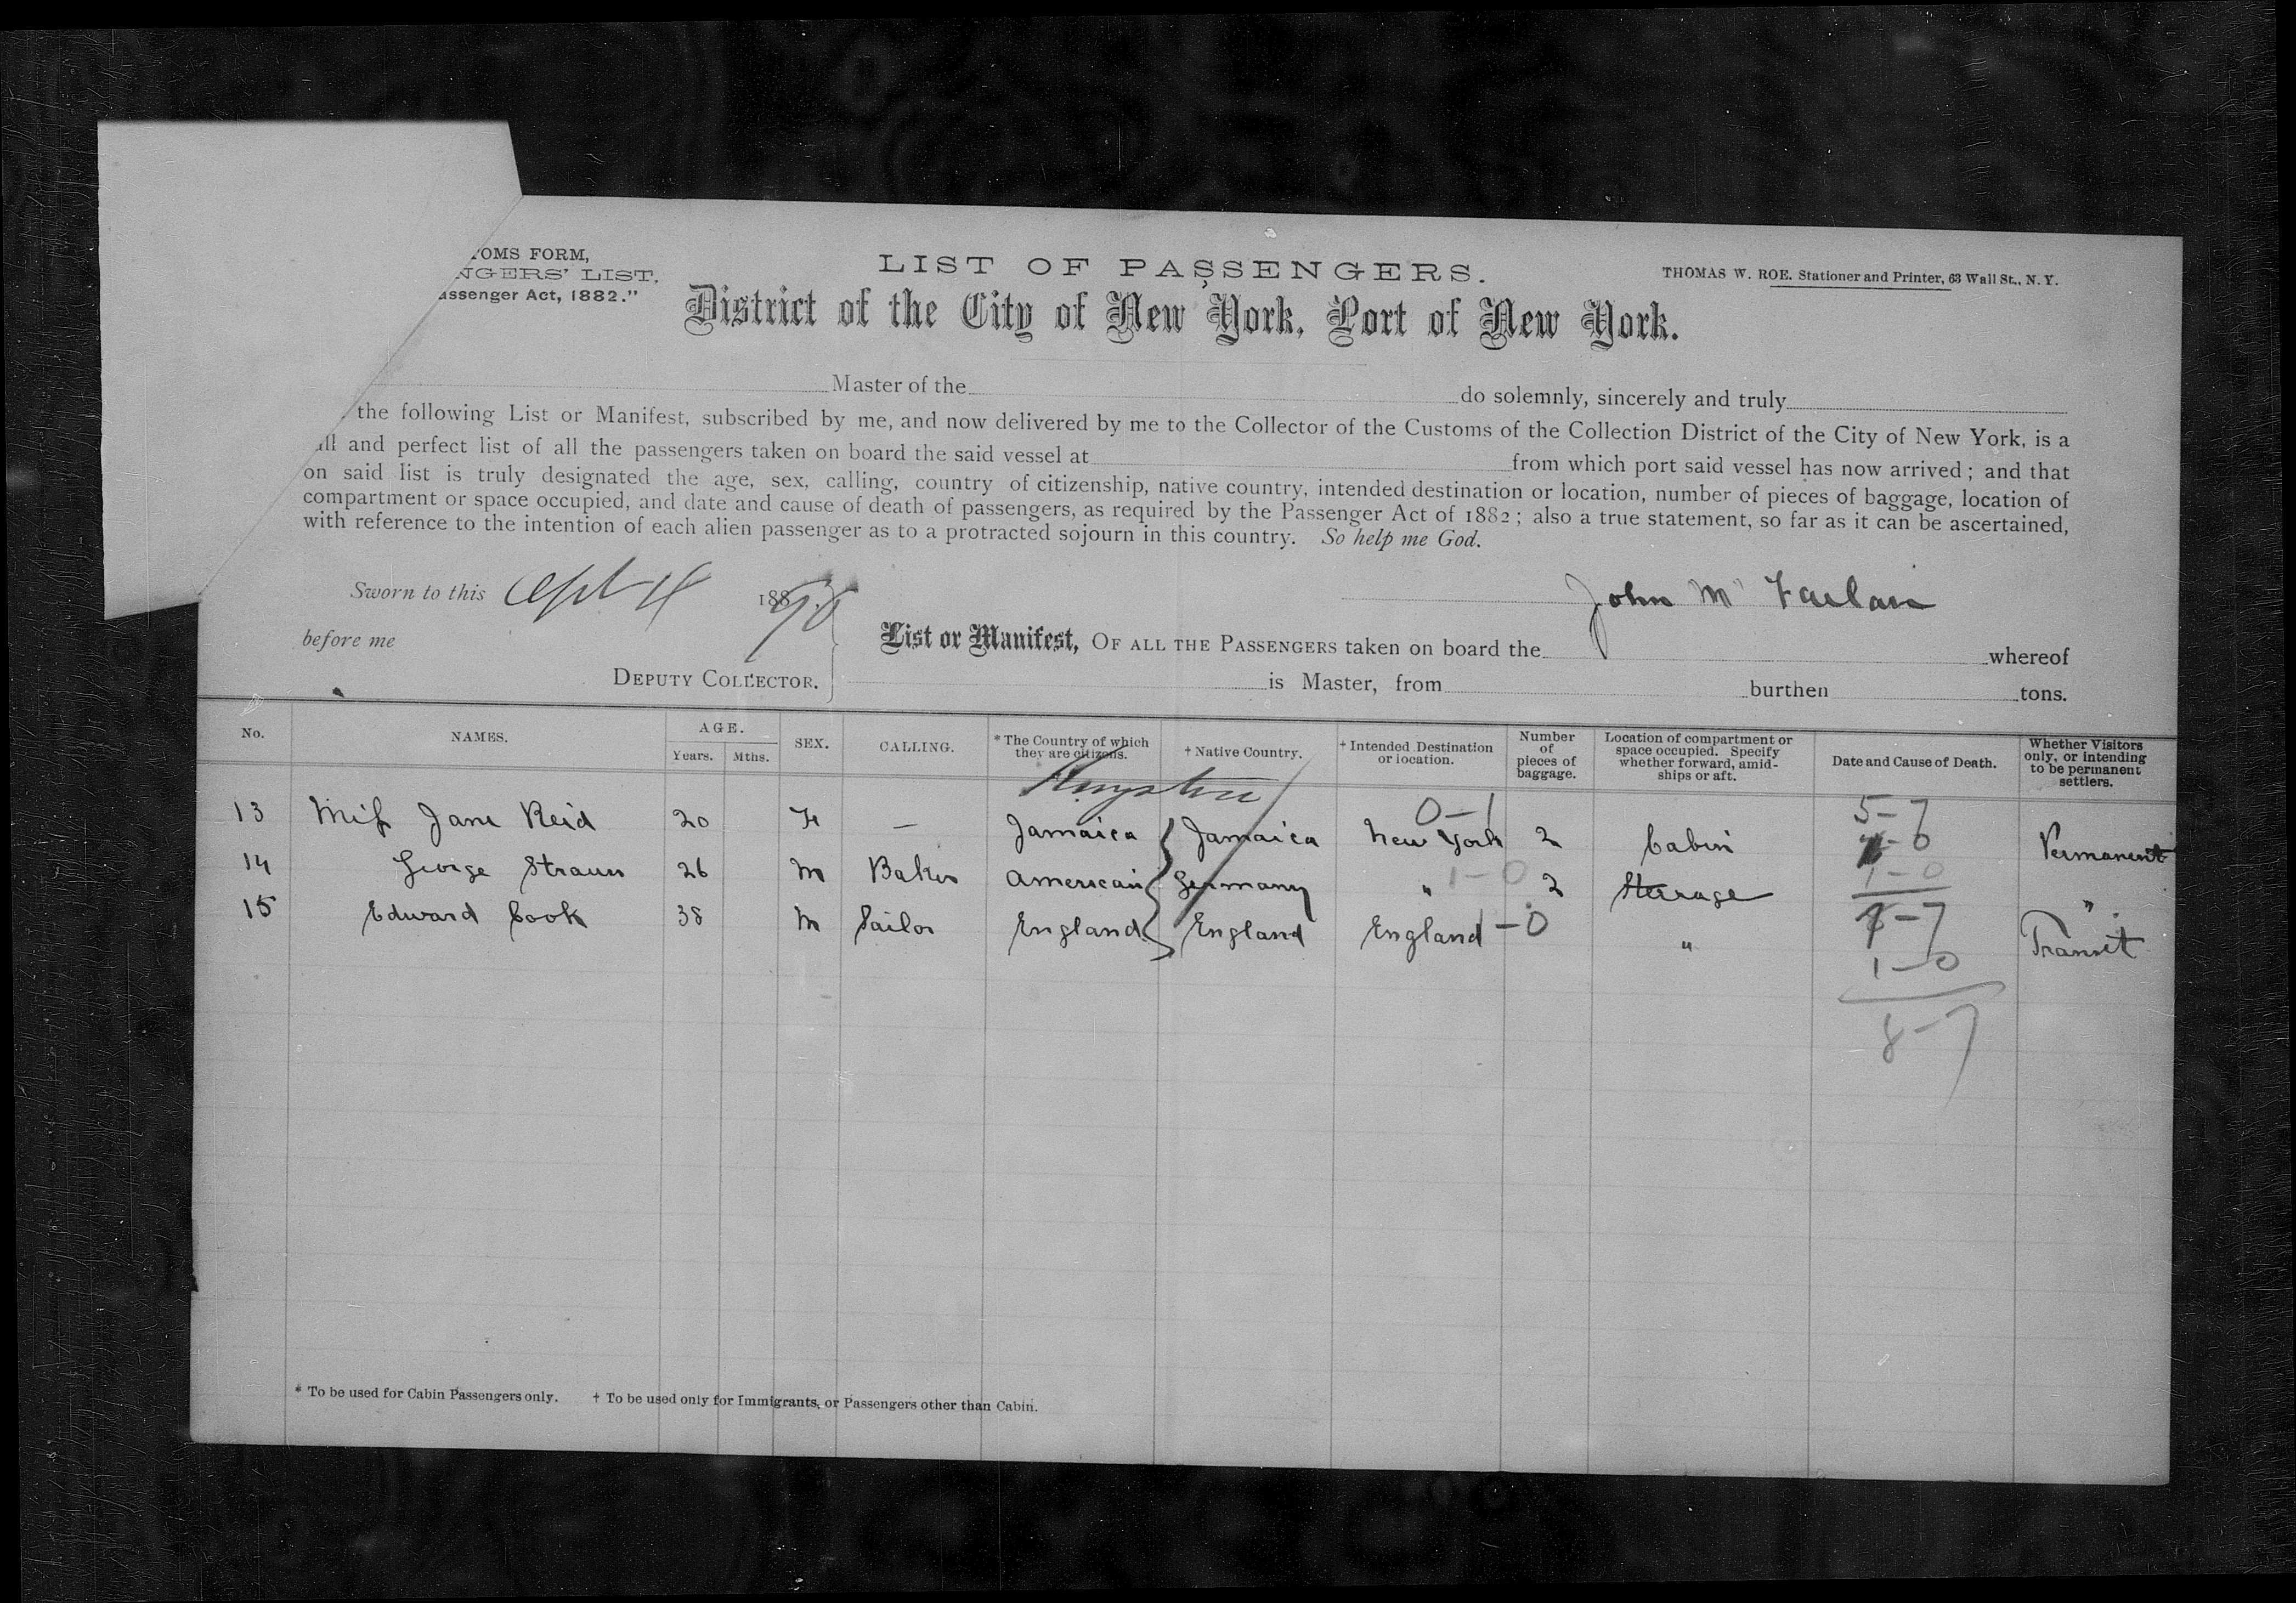 OMS FORM,
NGERS' LIST.
assenger Act, 1882."
LIST OF PASSENGERS.
THOMAS W. ROE, Stationer and Printer, 63 Wall St., N. Y.
District of the City of New York, Port of New York.
Master of the do solemnly, sincerely and truly
the following List or Manifest, subscribed by me, and now delivered by me to the Collector of the Customs of the Collection District of the City of New York, is a
ull and perfect list of all the passengers taken on board the said vessel at from which port said vessel has now arrived; and that
on said list is truly designated the age, sex, calling, country of citizenship, native country, intended destination or location, number of pieces of baggage, location of
compartment or space occupied, and date and cause of death of passengers, as required by the Passenger Act of 1882; also a true statement, so far as it can be ascertained,
with reference to the intention of each alien passenger as to a protracted sojourn in this country. So help me God.
Sworn to this Sept 188 90
John Mc Farlan
before me
List or Manifest, OF ALL THE PASSENGERS taken on board the whereof
DEPUTY COLLECTOR.
is Master, from burthen tons.
No. NAMES. AGE. Years. Mths. SEX. CALLING. * The Country of which they are citizens. † Native Country. † Intended Destination or location. Number of pieces of baggage. Location of compartment or space occupied. Specify whether forward, amidships or aft. Date and Cause of Death. Whether Visitors only, or intending to be permanent settlers.
Kingston
0-1 5-7
13 Miss Jane Reid 20 F — Jamaica Jamaica New York 2 Cabin Permanent
14 George Straun 26 M Baker American Germany " 1-0 2 Steerage 1-0 "
15 Edward Cook 38 M Sailor England England England -0 " -7 Transit
1-0
8-7
* To be used for Cabin Passengers only. † To be used only for Immigrants, or Passengers other than Cabin.